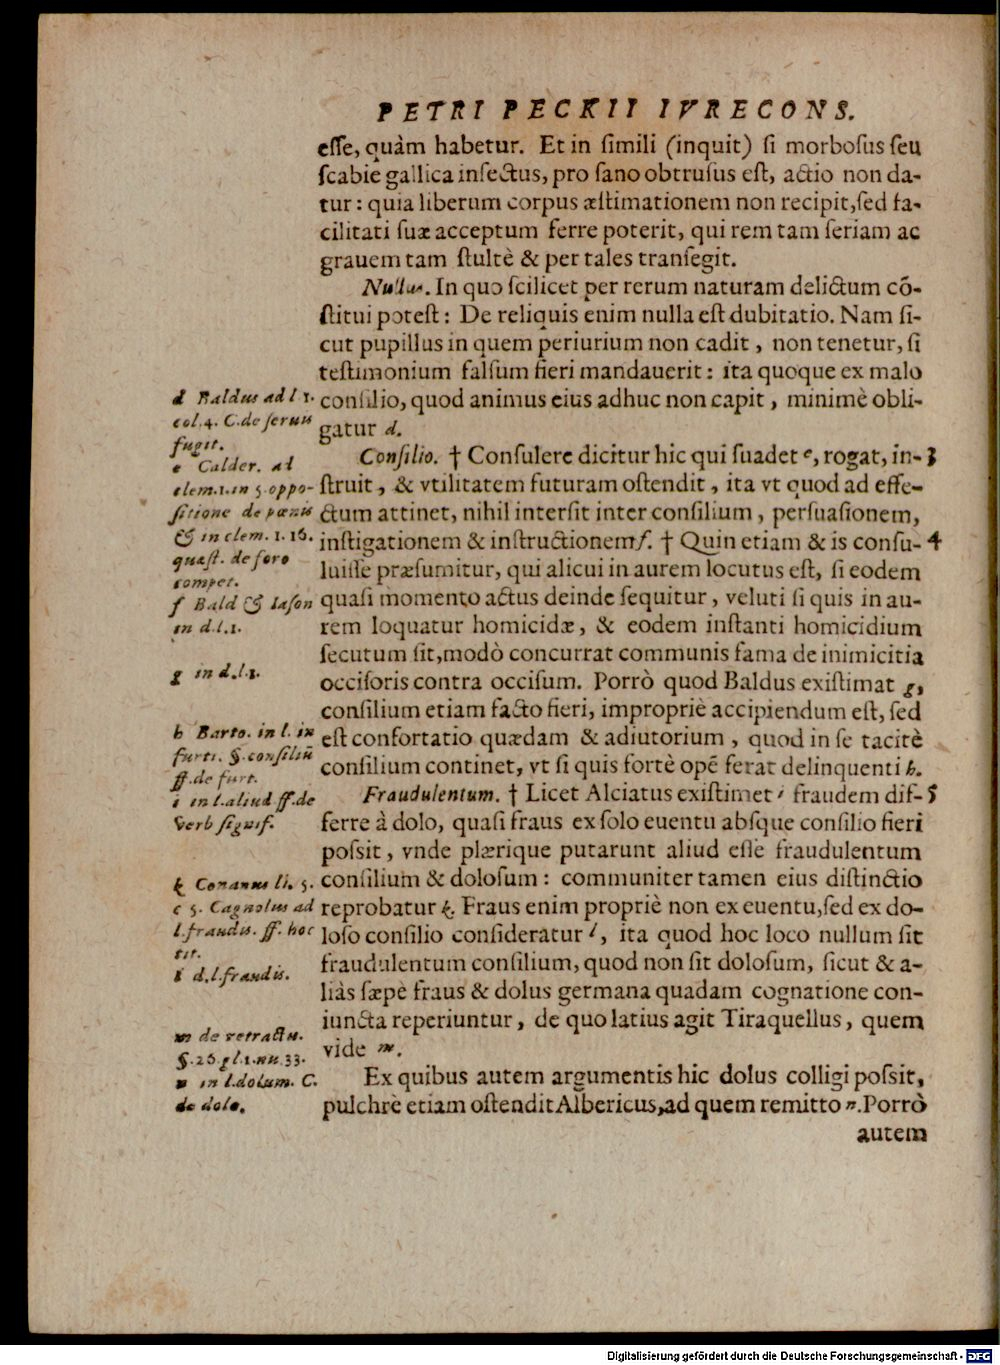 PETRI PECKII IVRECONS.
eſſe, quàm habetur. Et in ſimili (inquit) ſi morboſus ſeu
ſcabie gallica infectus, pro ſano obtruſus eſt, actio non da-
tur: quia liberum corpus æſtimationem non recipit, ſed fa-
cilitati ſuæ acceptum ferre poterit, qui rem tam ſeriam ac
grauem tam ſtultè & per tales tranſegit.
Nullus. In quo ſcilicet per rerum naturam delictum cō-
ſtitui poteſt: De reliquis enim nulla eſt dubitatio. Nam ſi-
cut pupillus in quem periurium non cadit, non tenetur, ſi
teſtimonium falſum fieri mandauerit: ita quoque ex malo
conſilio, quod animus eius adhuc non capit, minimè obli-
gatur d.
Conſilio. † Conſulere dicitur hic qui ſuadet e, rogat, in- 3
ſtruit, & vtilitatem futuram oſtendit, ita vt quod ad effe-
ctum attinet, nihil interſit inter conſilium, perſuaſionem,
inſtigationem & inſtructionem f. † Quin etiam & is conſu- 4
luiſſe præſumitur, qui alicui in aurem locutus eſt, ſi eodem
quaſi momento actus deinde ſequitur, veluti ſi quis in au-
rem loquatur homicidæ, & eodem inſtanti homicidium
ſecutum ſit, modò concurrat communis fama de inimicitia
occiſoris contra occiſum. Porrò quod Baldus exiſtimat g,
conſilium etiam facto fieri, impropriè accipiendum eſt, ſed
eſt confortatio quædam & adiutorium, quod in ſe tacitè
conſilium continet, vt ſi quis fortè opē ferat delinquenti h.
Fraudulentum. † Licet Alciatus exiſtimet i fraudem dif- 5
ferre à dolo, quaſi fraus ex ſolo euentu abſque conſilio fieri
poſsit, vnde plærique putarunt aliud eſſe fraudulentum
conſilium & doloſum: communiter tamen eius diſtinctio
reprobatur k. Fraus enim propriè non ex euentu, ſed ex do-
loſo conſilio conſideratur l, ita quod hoc loco nullum ſit
fraudulentum conſilium, quod non ſit doloſum, ſicut & a-
liàs ſæpè fraus & dolus germana quadam cognatione con-
iuncta reperiuntur, de quo latius agit Tiraquellus, quem
vide m.
Ex quibus autem argumentis hic dolus colligi poſsit,
pulchrè etiam oſtendit Albericus, ad quem remitto n. Porrò
autem
d Baldus ad l 1.
col. 4. C. de ſeruis
fugit.
e Calder. ad
clem. 1. in 5. oppo-
ſitione de pœnis
& in clem. 1. 16.
quæſt. de foro
compet.
f Bald & Iaſon
in d. l. 1.
g in d. l. 1.
h Barto. in l. in
furti. §. conſiliū
ff. de furt.
i in l. aliud ff. de
verb ſignif.
k Conanus li. 5.
c 5. Cagnolus ad
l. fraudis. ff. hoc
tit.
l d. l. fraudis.
m de retractu.
§. 26. gl. 1. nu 33.
n in l. dolum. C.
de dolo.
Digitalisierung gefördert durch die Deutsche Forschungsgemeinschaft - DFG